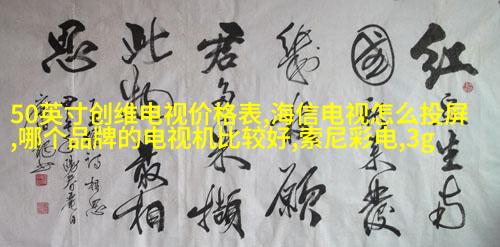 50英寸创维电视价格表,海信电视怎么投屏
,哪个品牌的电视机比较好,索尼彩电,3g
红豆生南
國春来發
幾枝願
君多采撷
此物最相
思